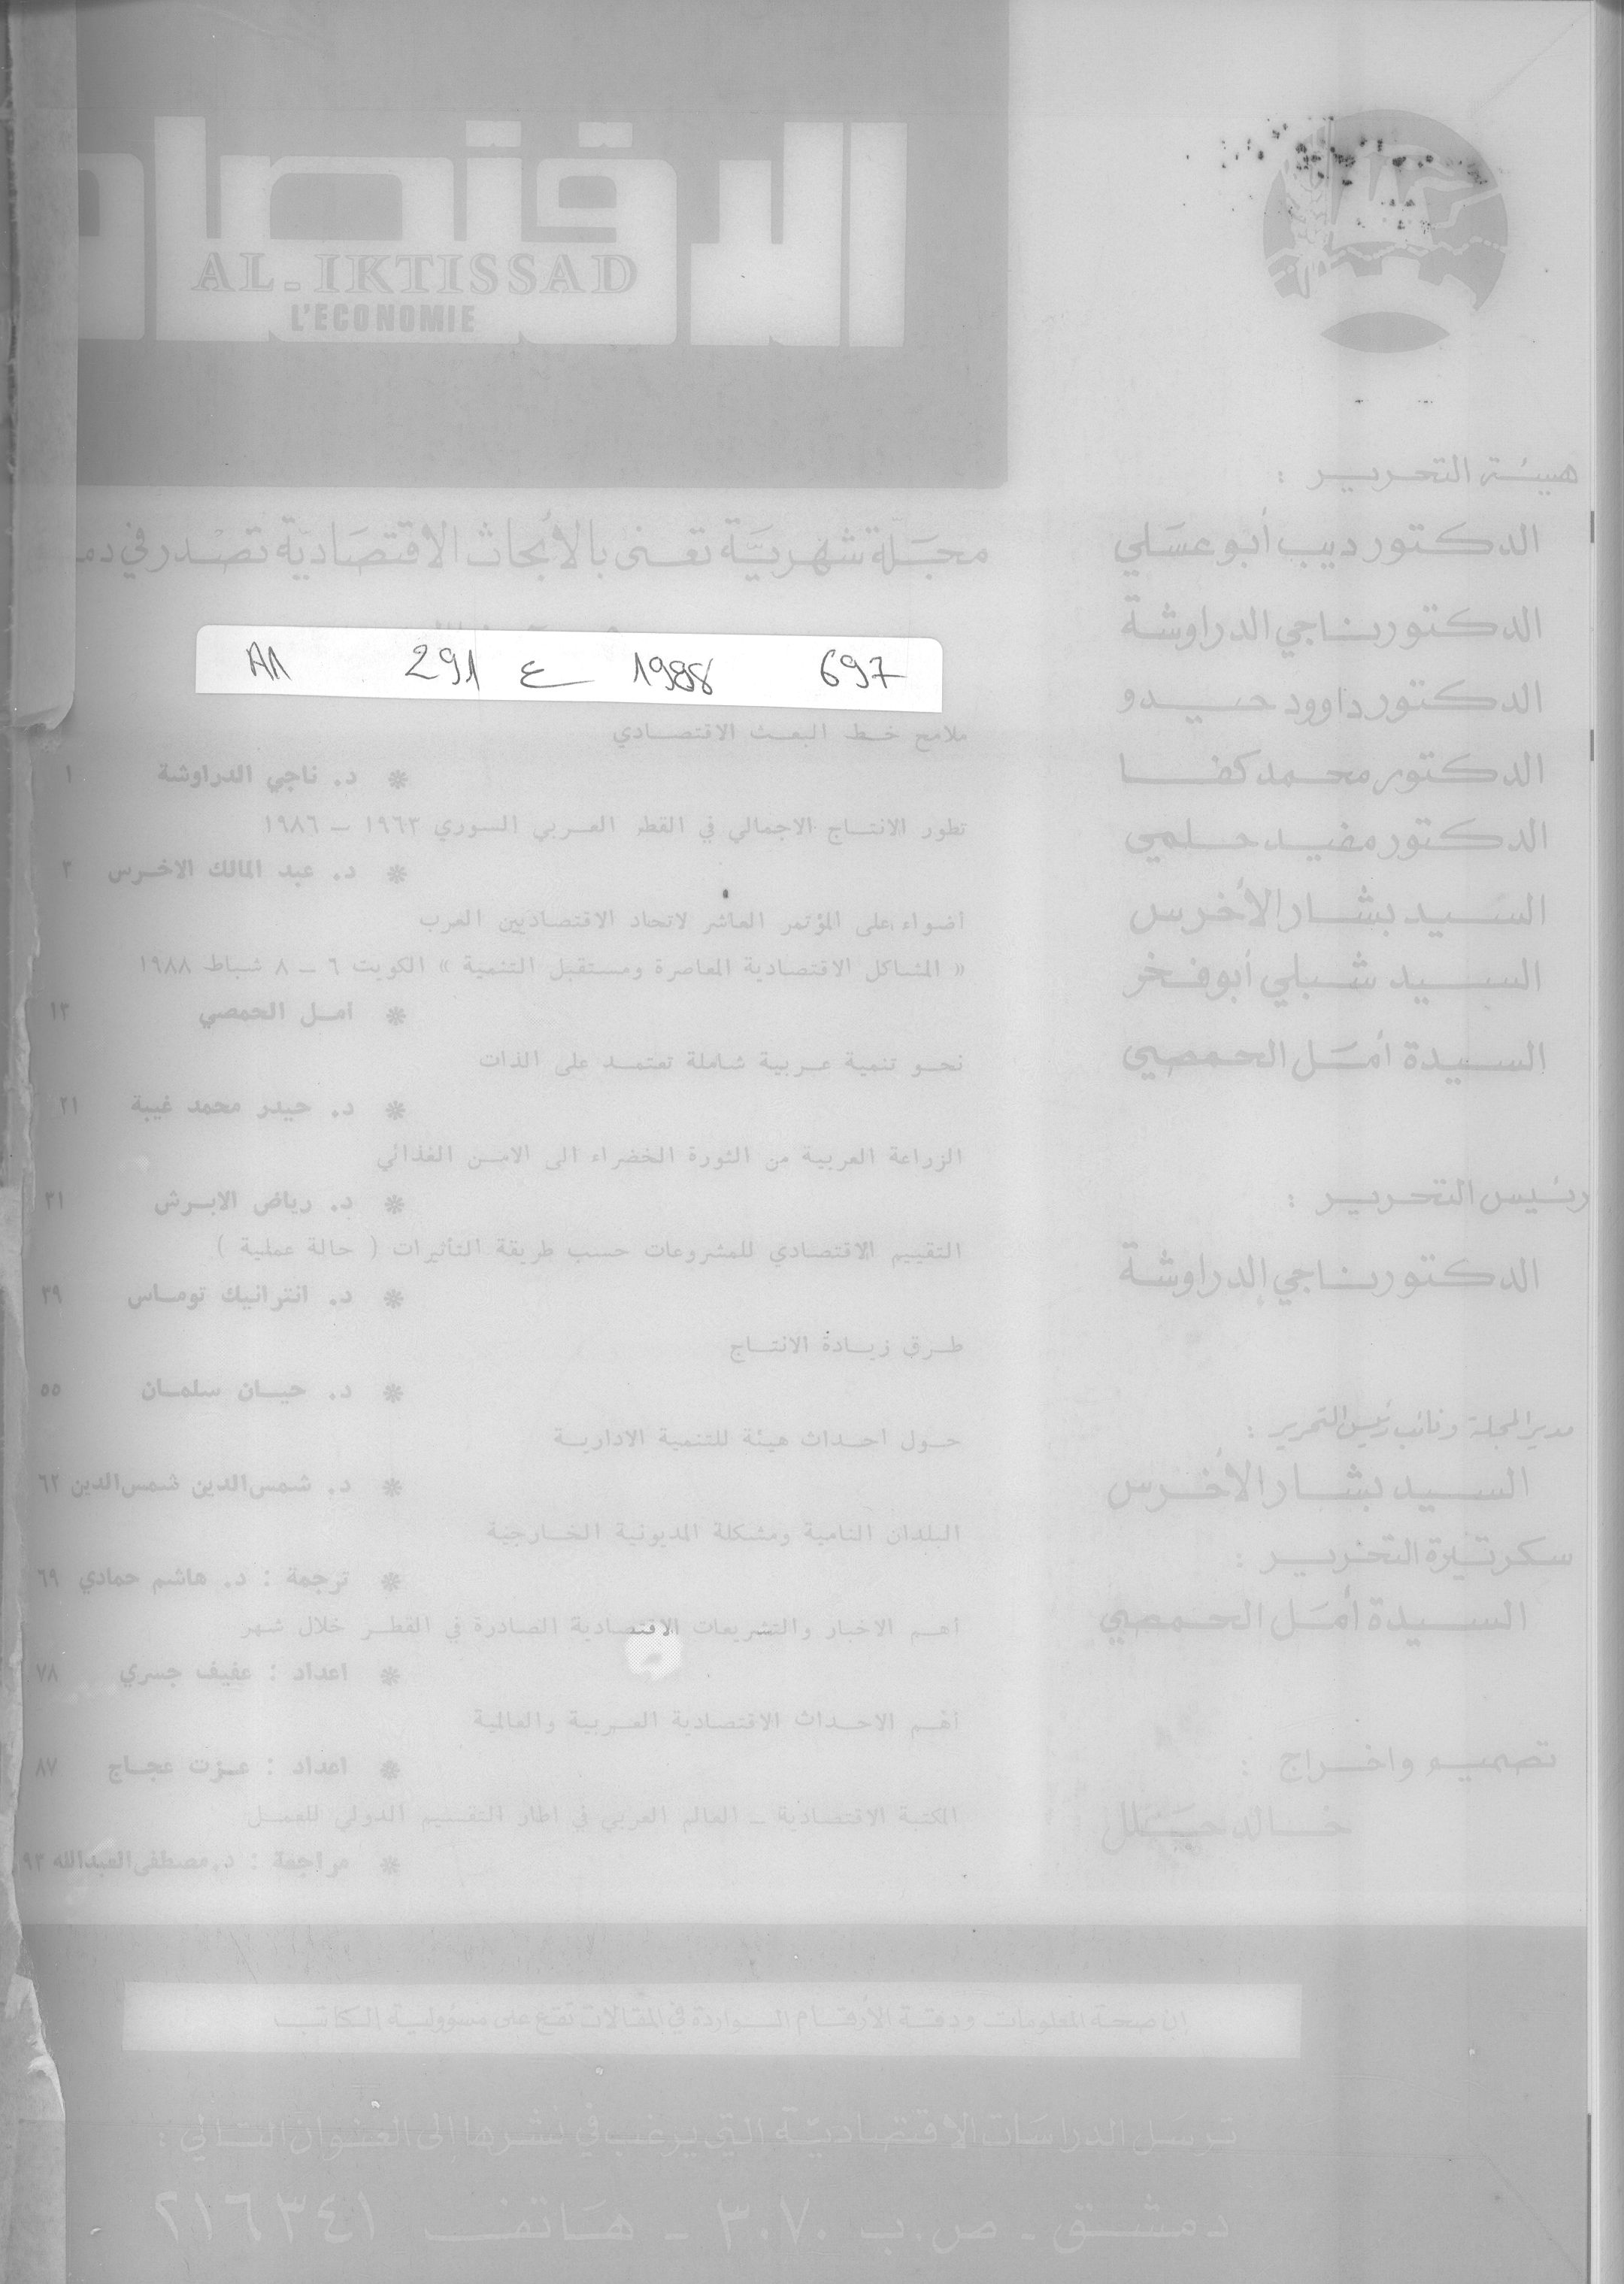 الاقتصاد
AL-IKTISSAD
L'ECONOMIE
مجلة شهرية تعنى بالأبحاث الاقتصادية تصدر في دمـ
A1 291 ع 1988 697
ملامح خط البعث الاقتصـــادي
* د. ناجي الدراوشة ١
تطور الانتــاج الاجمالي في القطر العـربي السوري ١٩٦٣ – ١٩٨٦
* د. عبد المالك الاخـرس ٣
أضواء على المؤتمر العاشر لاتحاد الاقتصاديين العرب
« المشاكل الاقتصادية المعاصرة ومستقبل التنمية » الكويت ٦ – ٨ شباط ١٩٨٨
* امـل الحمصي ١٣
نحـو تنمية عـربية شاملة تعتمـد على الذات
* د. حيدر محمد غيبة ٢١
الزراعة العربية من الثورة الخضراء الى الامـن الغذائي
* د. رياض الابـرش ٣١
التقييم الاقتصادي للمشروعات حسب طريقة التأثيرات ( حالة عملية )
* د. انترانيك تومـاس ٣٩
طـرق زيـادة الانتــاج
* د. حيـان سلمـان ٥٥
حـول احـداث هيئة للتنمية الاداريـة
* د. شمس الدين شمس الدين ٦٢
البلدان النامية ومشكلة المديونية الخـارجية
* ترجمة : د. هاشم حمادي ٦٩
أهـم الاخبار والتشريعات الاقتصادية الصادرة في القطـر خلال شهر
* اعداد : عفيف جسري ٧٨
أهـم الاحـداث الاقتصادية العـربية والعالمية
* اعداد : عـزت عجـاج ٨٧
المكتبة الاقتصادية – العالم العربي في اطار التقسيم الدولي للعمـل
* مراجعة : د. مصطفى العبدالله ٩٣
هيئة التحرير :
الدكتور ديب أبو عسلي
الدكتور ناجي الدراوشة
الدكتور داوود حيدو
الدكتور محمد كفا
الدكتور مفيد حلمي
السيد بشار الأخرس
السيد شبلي أبو فخر
السيدة أمل الحمصي
رئيس التحرير :
الدكتور ناجي الدراوشة
مدير المجلة ونائب رئيس التحرير :
السيد بشار الأخرس
سكرتيرة التحرير :
السيدة أمل الحمصي
تصميم واخراج :
خالد
إن صحة المعلومات ودقة الأرقام الواردة في المقالات تقع على مسؤولية الكاتب
ترسل الدراسات الاقتصادية التي يرغب في نشرها الى العنوان التالي :
دمشق - ص.ب ٣٠٧٠ - هاتف ٢١٦٣٤١